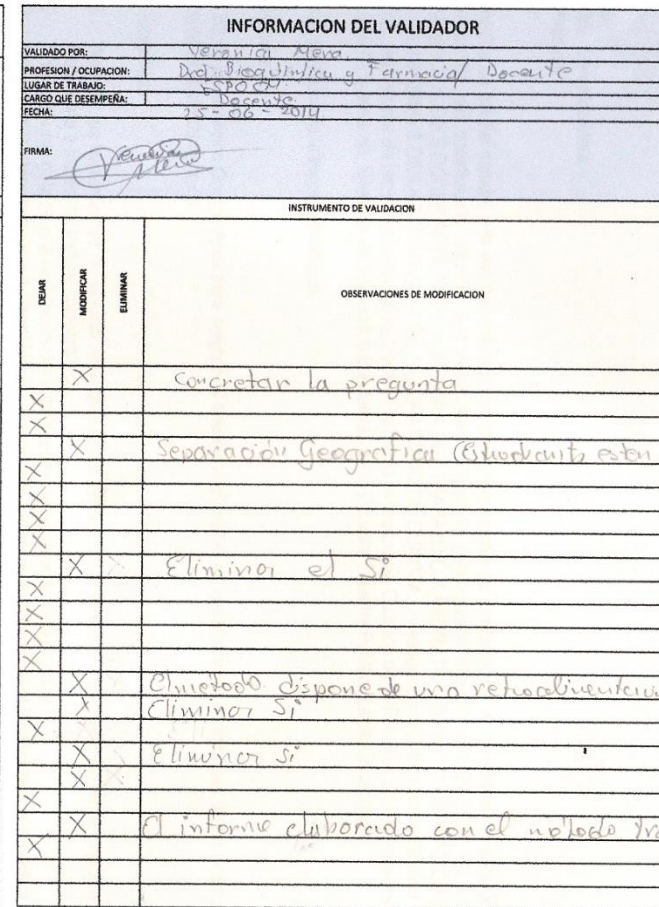 INFORMACION DEL VALIDADOR
VALIDADO POR: Veronica Mera.
PROFESION / OCUPACION: Dra. Bioquímica y Farmacia/ Docente
LUGAR DE TRABAJO: ESPOCH
CARGO QUE DESEMPEÑA: Docente
FECHA: 25-06-2014
FIRMA:
INSTRUMENTO DE VALIDACION
DEJAR MODIFICAR ELIMINAR OBSERVACIONES DE MODIFICACION
X Concretar la pregunta
X
X
X Separación Geografica (Estudiants estan
X
X
X
X
X Eliminar el Si
X
X
X
X
X El metodo dispone de una
X Eliminar Si
X
X Eliminar Si
X
X
X El informe elaborado con el
X